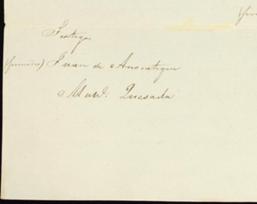 Testigo
(firmado) Juan de Anocategui
Manl. Quesada